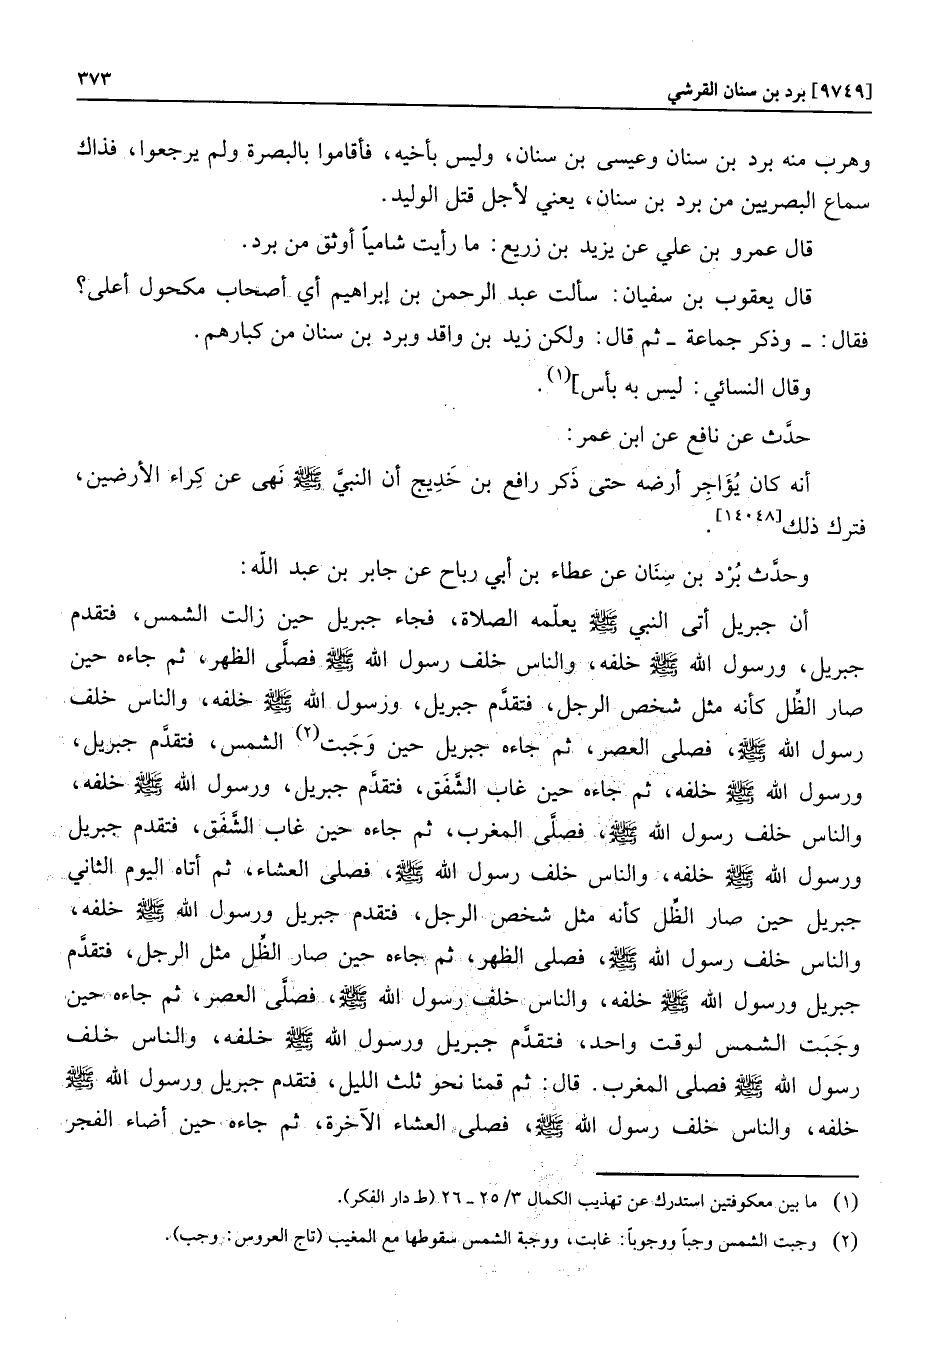 [٩٧٤٩] برد بن سنان القرشي
٣٧٣
وهرب منه برد بن سنان وعيسى بن سنان، وليس بأخيه، فأقاموا بالبصرة ولم يرجعوا، فذاك
سماع البصريين من برد بن سنان، يعني لأجل قتل الوليد.
قال عمرو بن علي عن يزيد بن زريع: ما رأيت شامياً أوثق من برد.
قال يعقوب بن سفيان: سألت عبد الرحمن بن إبراهيم أي أصحاب مكحول أعلى؟
فقال: ـ وذكر جماعة ـ ثم قال: ولكن زيد بن واقد وبرد بن سنان من كبارهم.
وقال النسائي: ليس به بأس](١).
حدَّث عن نافع عن ابن عمر:
أنه كان يُؤَاجِر أرضه حتى ذَكر رافع بن خَدِيج أن النبيَّ ﷺ نَهى عن كِراء الأرضين،
فترك ذلك[١٤٠٤٨].
وحدَّث بُرْد بن سِنَان عن عطاء بن أبي رباح عن جابر بن عبد اللّه:
أن جبريل أتى النبي ﷺ يعلّمه الصلاة، فجاء جبريل حين زالت الشمس، فتقدم
جبريل، ورسول الله ﷺ خلفه، والناس خلف رسول الله ﷺ فصلَّى الظهر، ثم جاءه حين
صار الظِّل كأنه مثل شخص الرجل، فتقدَّم جبريل، ورسول الله ﷺ خلفه، والناس خلف
رسول الله ﷺ، فصلى العصر، ثم جاءه جبريل حين وَجَبت(٢) الشمس، فتقدَّم جبريل،
ورسول الله ﷺ خلفه، ثم جاءه حين غاب الشَّفَق، فتقدَّم جبريل، ورسول الله ﷺ خلفه،
والناس خلف رسول الله ﷺ، فصلَّى المغرب، ثم جاءه حين غاب الشَّفَق، فتقدم جبريل
ورسول الله ﷺ خلفه، والناس خلف رسول الله ﷺ، فصلى العشاء، ثم أتاه اليوم الثاني
جبريل حين صار الظِّل كأنه مثل شخص الرجل، فتقدم جبريل ورسول الله ﷺ خلفه،
والناس خلف رسول الله ﷺ، فصلى الظهر، ثم جاءه حين صار الظِّل مثل الرجل، فتقدَّم
جبريل ورسول الله ﷺ خلفه، والناس خلف رسول الله ﷺ، فصلَّى العصر، ثم جاءه حين
وجَبَت الشمس لوقت واحد، فتقدَّم جبريل ورسول الله ﷺ خلفه، والناس خلف
رسول الله ﷺ فصلى المغرب. قال: ثم قمنا نحو ثلث الليل، فتقدم جبريل ورسول الله ﷺ
خلفه، والناس خلف رسول الله ﷺ، فصلى العشاء الآخرة، ثم جاءه حين أضاء الفجر
(١) ما بين معكوفتين استدرك عن تهذيب الكمال ٣/ ٢٥ ـ ٢٦ (ط دار الفكر).
(٢) وجبت الشمس وجباً ووجوباً: غابت، ووجبة الشمس سقوطها مع المغيب (تاج العروس: وجب).